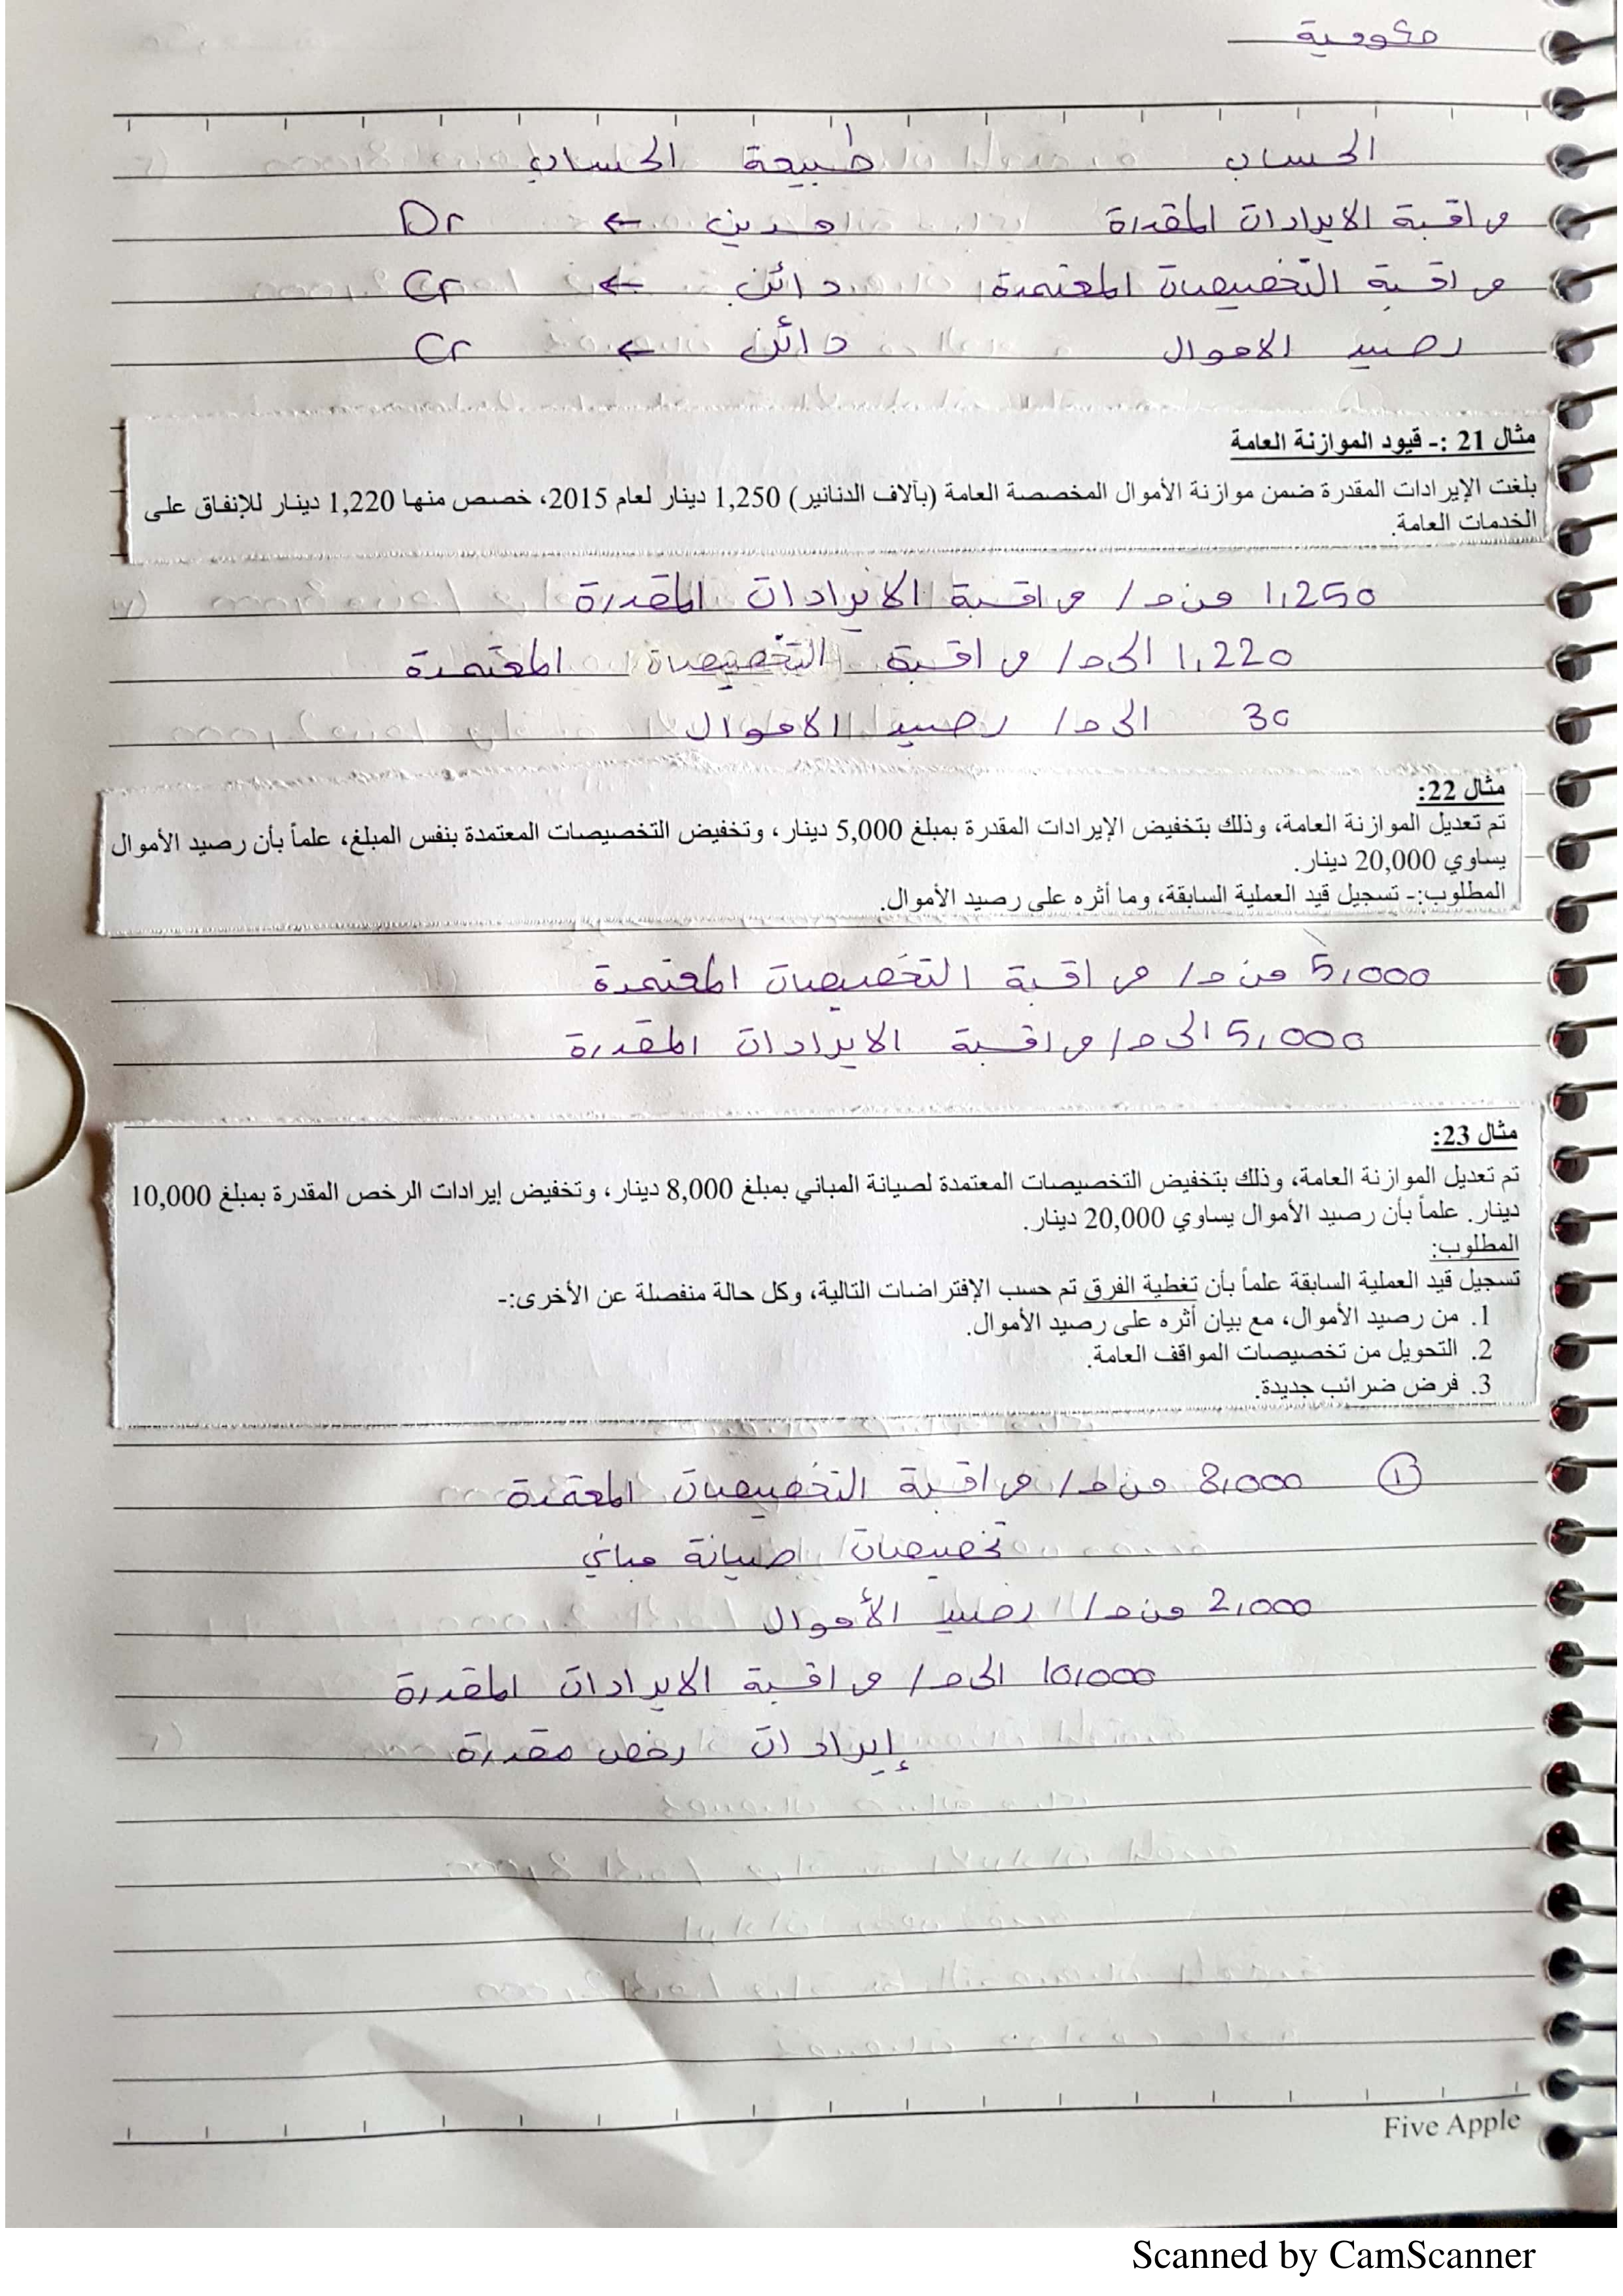 حكومية
الحساب طبيعة الحساب
مراقبة الايرادات المقدرة مدين ← Dr
مراقبة التخصيصات المعتمدة دائن ← Cr
رصيد الاموال دائن ← Cr
مثال 21 :- قيود الموازنة العامة
بلغت الإيرادات المقدرة ضمن موازنة الأموال المخصصة العامة (بآلاف الدنانير) 1,250 دينار لعام 2015، خصص منها 1,220 دينار للإنفاق على
الخدمات العامة.
1,250 من ح/ مراقبة الايرادات المقدرة
1,220 الى ح/ مراقبة التخصيصات المعتمدة
30 الى ح/ رصيد الاموال
مثال 22:
تم تعديل الموازنة العامة، وذلك بتخفيض الإيرادات المقدرة بمبلغ 5,000 دينار، وتخفيض التخصيصات المعتمدة بنفس المبلغ، علماً بأن رصيد الأموال
يساوي 20,000 دينار.
المطلوب:- تسجيل قيد العملية السابقة، وما أثره على رصيد الأموال.
5,000 من ح/ مراقبة التخصيصات المعتمدة
5,000 الى ح/ مراقبة الايرادات المقدرة
مثال 23:
تم تعديل الموازنة العامة، وذلك بتخفيض التخصيصات المعتمدة لصيانة المباني بمبلغ 8,000 دينار، وتخفيض إيرادات الرخص المقدرة بمبلغ 10,000
دينار. علماً بأن رصيد الأموال يساوي 20,000 دينار.
المطلوب:
تسجيل قيد العملية السابقة علماً بأن تغطية الفرق تم حسب الإفتراضات التالية، وكل حالة منفصلة عن الأخرى:-
1. من رصيد الأموال، مع بيان أثره على رصيد الأموال.
2. التحويل من تخصيصات المواقف العامة.
3. فرض ضرائب جديدة.
① 8,000 من ح/ مراقبة التخصيصات المعتمدة
تخصيصات صيانة مباني
2,000 من ح/ رصيد الأموال
10,000 الى ح/ مراقبة الايرادات المقدرة
إيرادات رخص مقدرة
Five Apple
Scanned by CamScanner